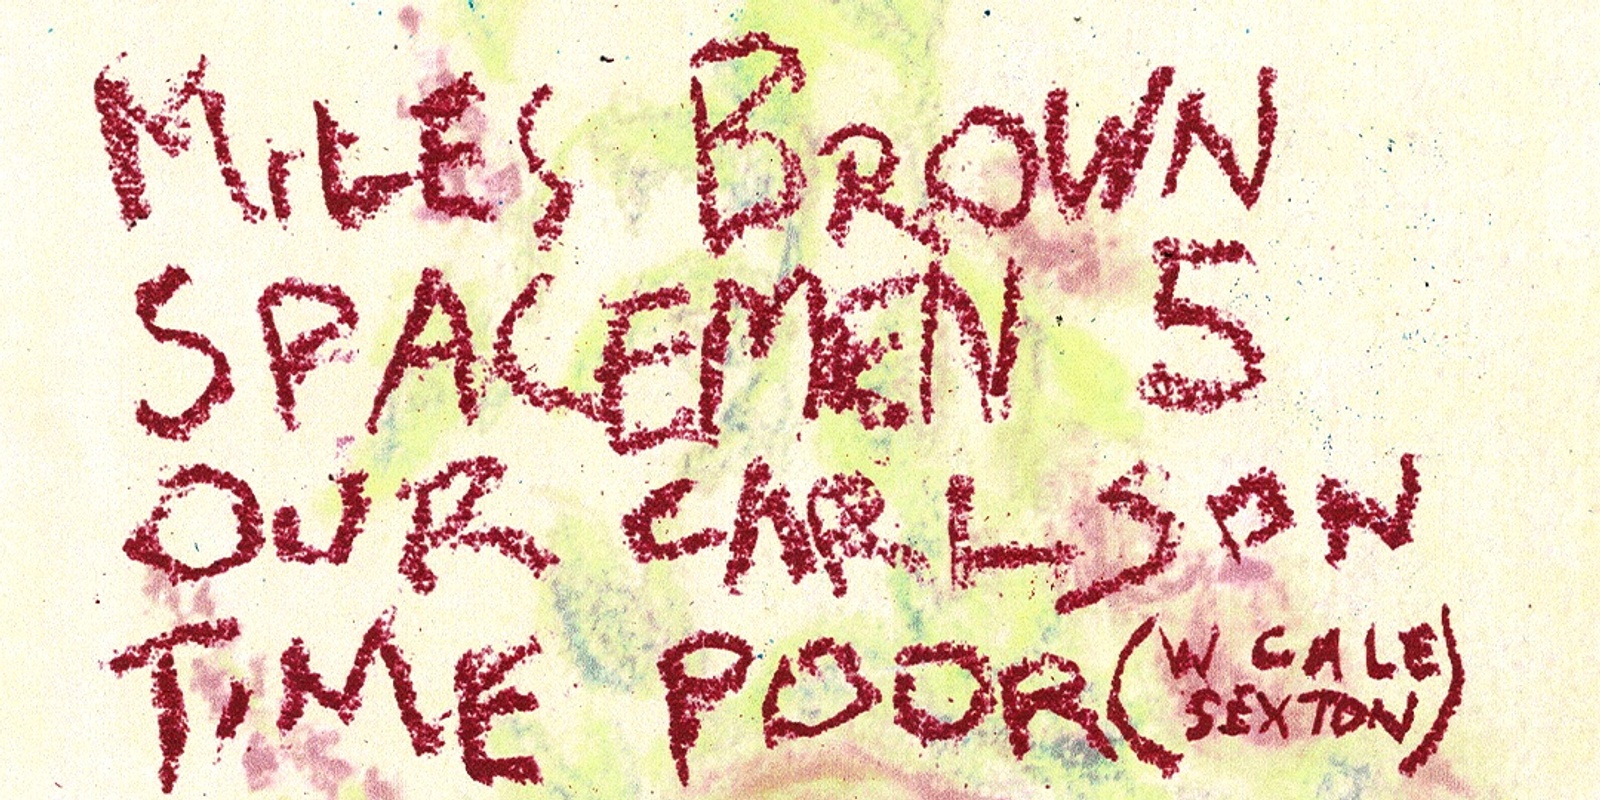 MiLES BROWN
SPACEMEN 5
OUR CARLSON
TiME POOR (W CALE
SEXTON)